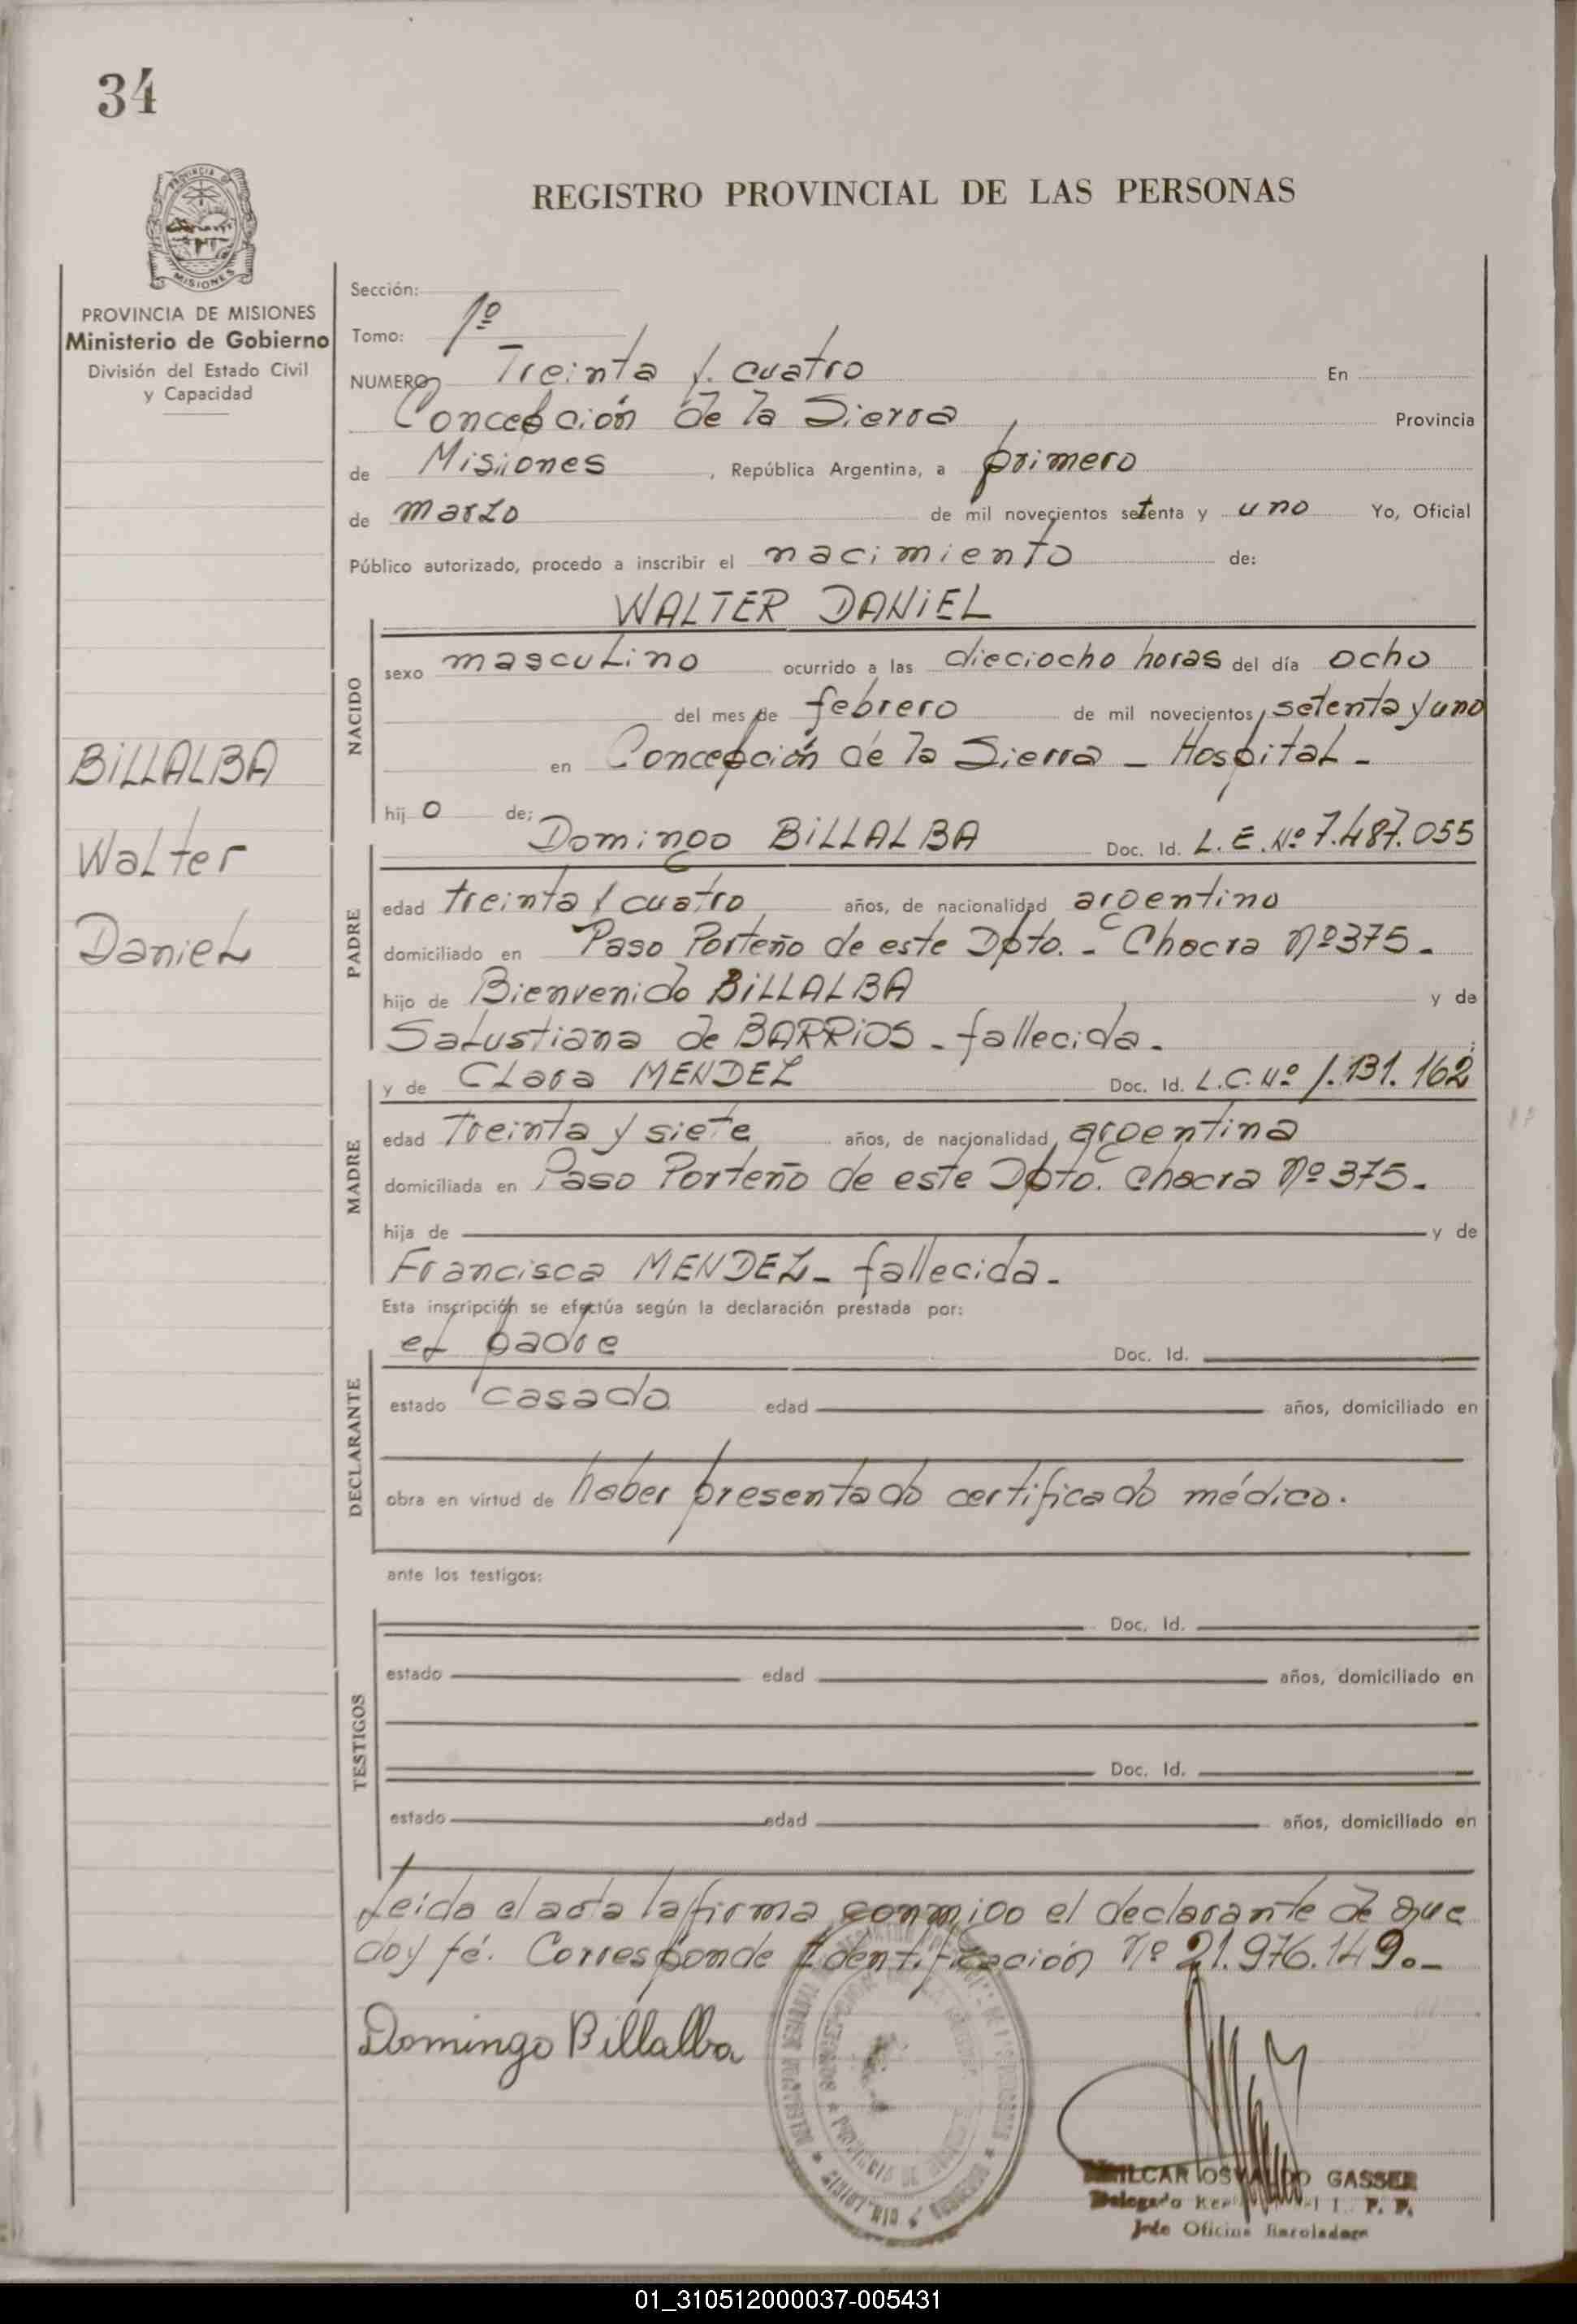 34
REGISTRO PROVINCIAL DE LAS PERSONAS
PROVINCIA DE MISIONES
Ministerio de Gobierno
División del Estado Civil
y Capacidad
BILLALBA
Walter
Daniel
Sección:
Tomo: 1º
NUMERO Treinta y cuatro En
Concepción de la Sierra Provincia
de Misiones, República Argentina, a primero
de marzo de mil novecientos setenta y uno Yo, Oficial
Público autorizado, procedo a inscribir el nacimiento de:
WALTER DANIEL
NACIDO
sexo masculino ocurrido a las dieciocho horas del día ocho
del mes de febrero de mil novecientos setenta y uno
en Concepción de la Sierra - Hospital -
hijo de:
Domingo BILLALBA Doc. Id. L.E. Nº 7.487.055
PADRE
edad treinta y cuatro años, de nacionalidad argentino
domiciliado en Paso Porteño de este Dpto. - Chacra Nº 375 -
hijo de Bienvenido BILLALBA y de
Salustiana de BARRIOS - fallecida - ;
y de Clara MENDEZ Doc. Id. L.C. Nº 1.131.162
MADRE
edad Treinta y siete años, de nacionalidad argentina
domiciliada en Paso Porteño de este Dpto. Chacra Nº 375 -
hija de y de
Francisca MENDEZ - fallecida -
Esta inscripción se efectúa según la declaración prestada por:
el padre Doc. Id.
DECLARANTE
estado casado edad años, domiciliado en
obra en virtud de haber presentado certificado médico.
ante los testigos:
Doc. Id.
TESTIGOS
estado edad años, domiciliado en
Doc. Id.
estado edad años, domiciliado en
Leida el acta la firma conmigo el declarante de que
doy fé. Corresponde Identificación Nº 21.976.149.-
Domingo Billalba
OSVALDO GASSER
Delegado
Jefe Oficina
01_310512000037-005431